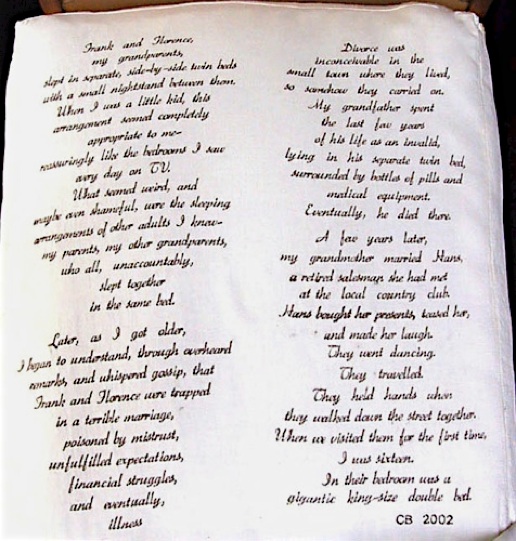 Frank and Florence,
my grandparents,
slept in separate, side-by-side twin beds
with a small nightstand between them.
When I was a little kid, this
arrangement seemed completely
appropriate to me-
reassuringly like the bedrooms I saw
every day on TV.
What seemed weird, and
maybe even shameful, were the sleeping
arrangements of other adults I knew-
my parents, my other grandparents,
who all, unaccountably,
slept together
in the same bed.
Later, as I got older,
I began to understand, through overheard
remarks, and whispered gossip, that
Frank and Florence were trapped
in a terrible marriage,
poisoned by mistrust,
unfulfilled expectations,
financial struggles,
and eventually,
illness
Divorce was
inconceivable in the
small town where they lived,
so somehow they carried on.
My grandfather spent
the last few years
of his life as an invalid,
lying in his separate twin bed,
surrounded by bottles of pills and
medical equipment.
Eventually, he died there.
A few years later,
my grandmother married Hans,
a retired salesman she had met
at the local country club.
Hans bought her presents, teased her,
and made her laugh.
They went dancing.
They travelled.
They held hands when
they walked down the street together.
When we visited them for the first time,
I was sixteen.
In their bedroom was a
gigantic king-size double bed.
CB 2002